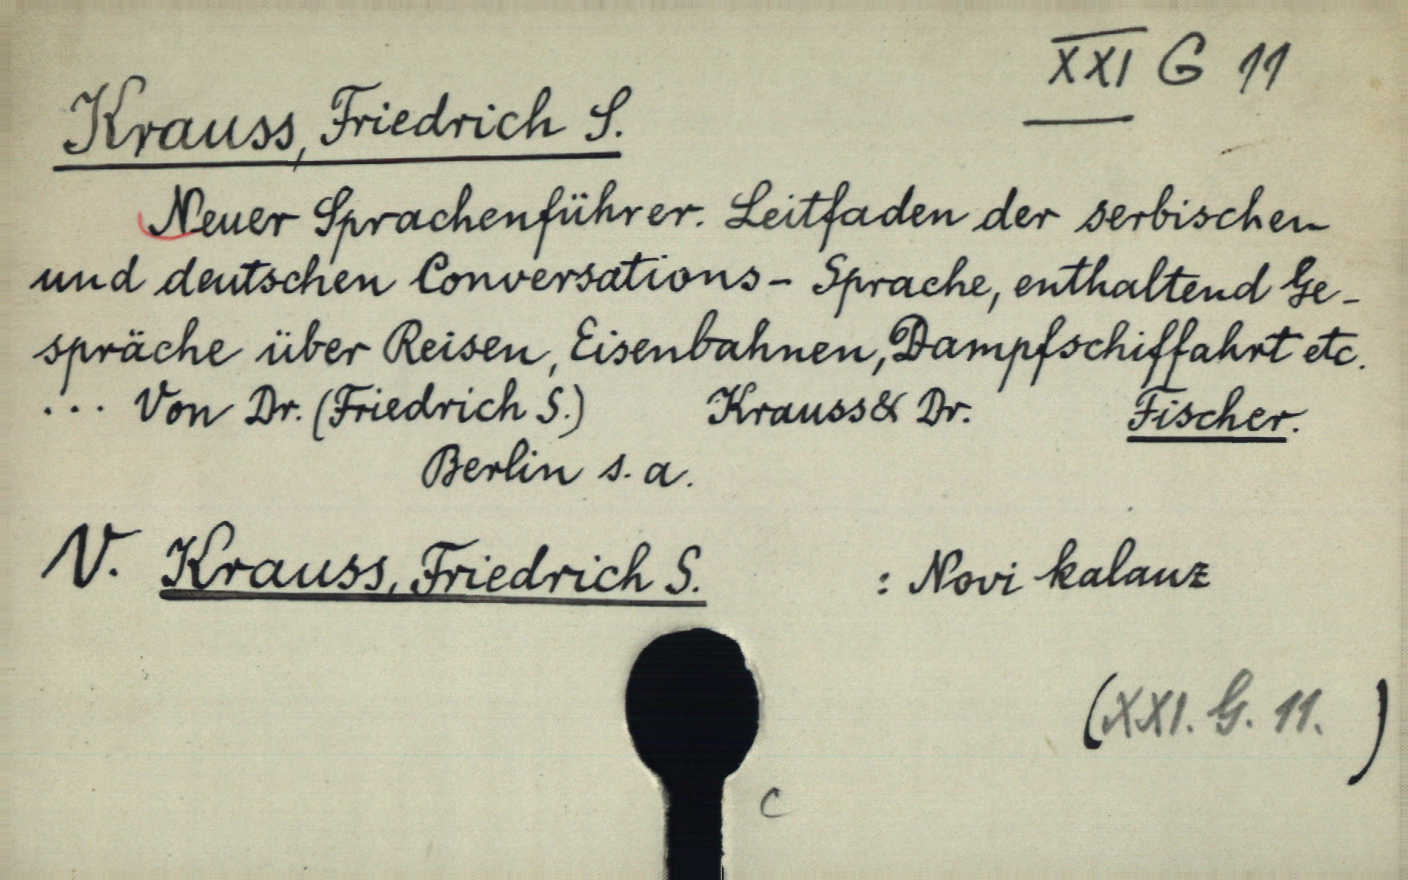 XXI G 11
Krauss, Friedrich S.
Neuer Sprachenführer. Leitfaden der serbischen
und deutschen Conversations- Sprache, enthaltend Ge-
spräche über Reisen, Eisenbahnen, Dampfschiffahrt etc.
... Von Dr. (Friedrich S.) Krauss & Dr. Fischer.
Berlin s. a.
V. Krauss, Friedrich S. : Novi kalauz
(XXI. G. 11. )
c